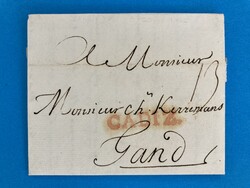 A Monsieur
13
Monsieur Ch.ˢ Kerremans
CADIZ
Gand